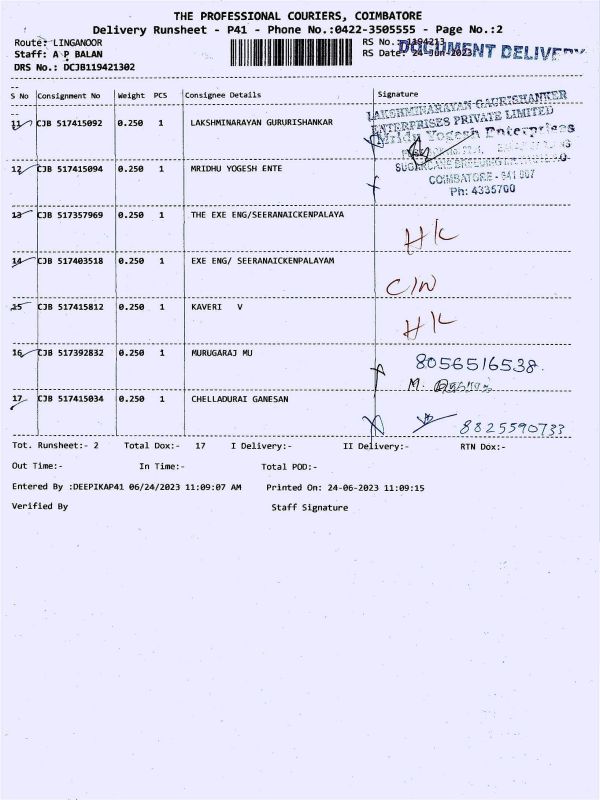 THE PROFESSIONAL COURIERS, COIMBATORE
Delivery Runsheet - P41 - Phone No.:0422-3505555 - Page No.:2
Route: LINGANOOR
RS No. 1194213
DOCUMENT DELIVERY
Staff: A P BALAN
RS Date: 24-Jun-2023
DRS No.: DCJB119421302
S No Consignment No Weight PCS Consignee Details Signature
11 CJB 517415092 0.250 1 LAKSHMINARAYAN GURURISHANKAR
LAKSHMINARAYAN GAURISHANKER
ENTERPRISES PRIVATE LIMITED
Mridu Yogesh Enterprises
12 CJB 517415094 0.250 1 MRIDHU YOGESH ENTE
COIMBATORE - 641 007
Ph: 4335700
13 CJB 517357969 0.250 1 THE EXE ENG/SEERANAICKENPALAYA
H/C
14 CJB 517403518 0.250 1 EXE ENG/ SEERANAICKENPALAYAM
C/W
15 CJB 517415812 0.250 1 KAVERI V
H/C
16 CJB 517392832 0.250 1 MURUGARAJ MU
8056516538.
17 CJB 517415034 0.250 1 CHELLADURAI GANESAN
8825590733
Tot. Runsheet:- 2 Total Dox:- 17 I Delivery:- II Delivery:- RTN Dox:-
Out Time:- In Time:- Total POD:-
Entered By :DEEPIKAP41 06/24/2023 11:09:07 AM Printed On: 24-06-2023 11:09:15
Verified By Staff Signature